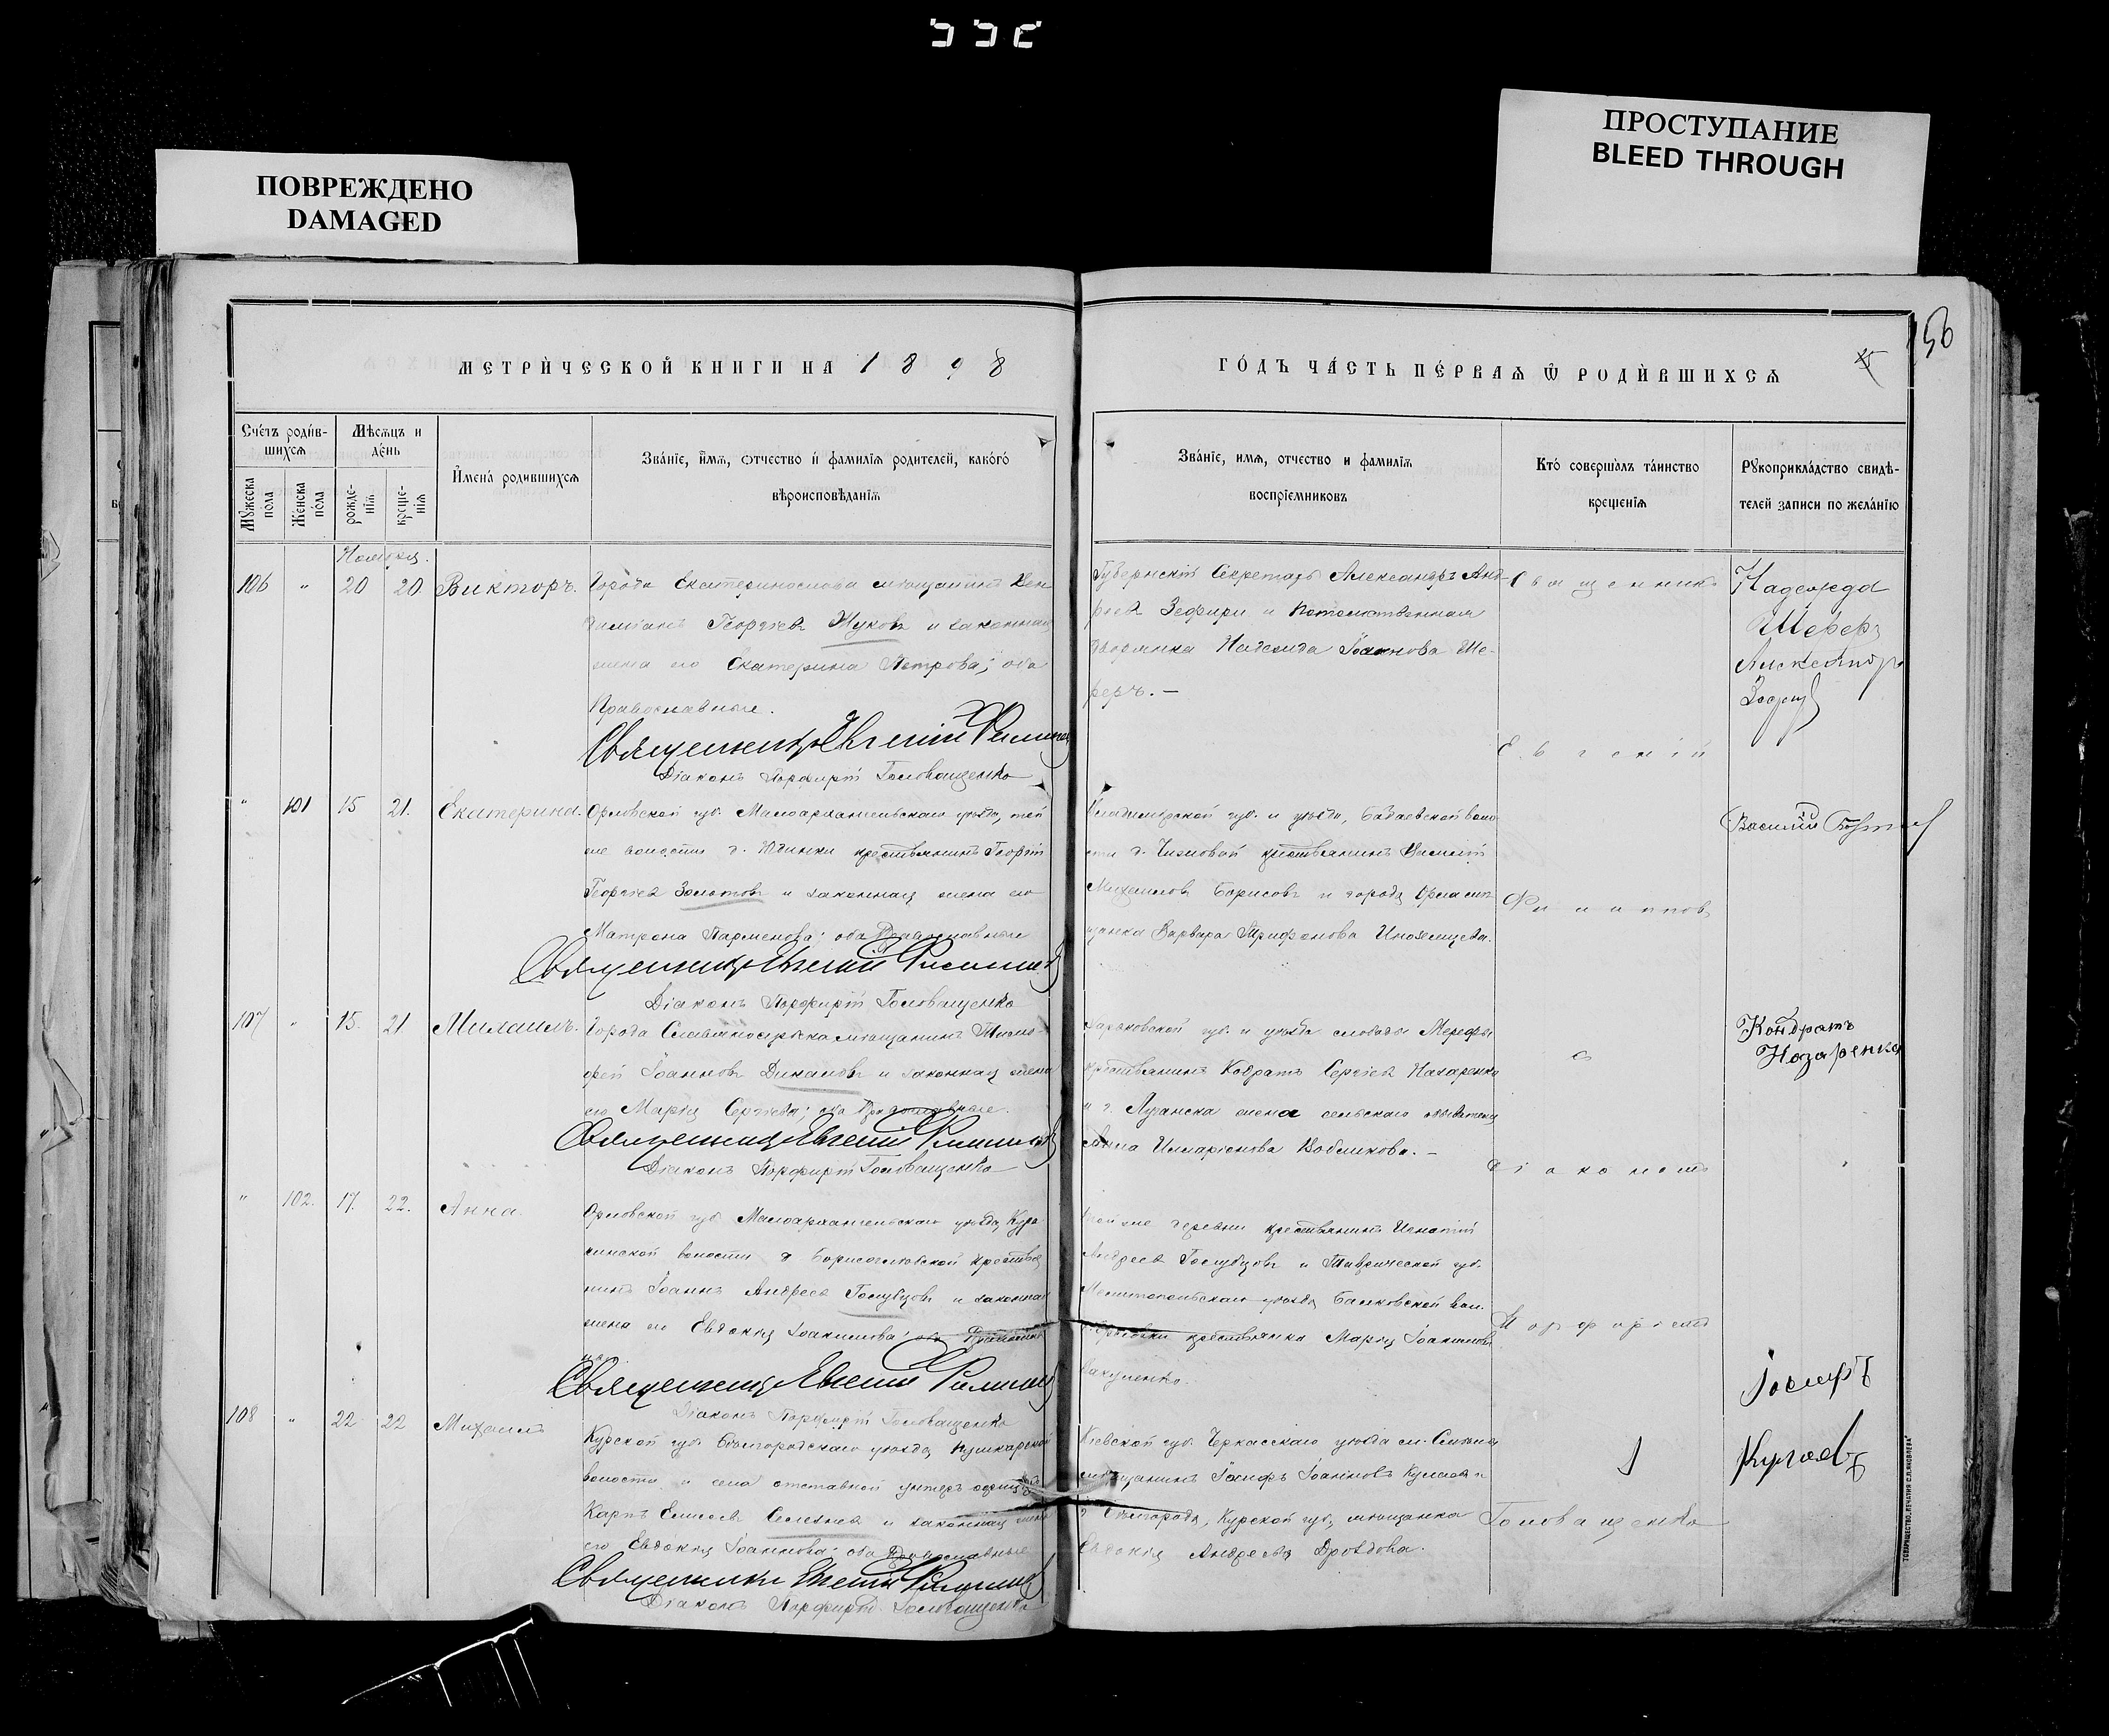 ПОВРЕЖДЕНО
DAMAGED
ПРОСТУПАНИЕ
BLEED THROUGH
МЕТРИЧЕСКОЙ КНИГИ НА 1898
ГОДЪ ЧАСТЬ ПЕРВАЯ Ѿ РОДИВШИХСЯ
156
Счетъ родив-
шихся
Мѣсяцъ и
день
Имена родившихся
Званіе, имя, отчество и фамилія родителей, какого
вѣроисповѣданія
Званіе, имя, отчество и фамилія
воспріемниковъ
Кто совершалъ таинство
крещенія
Рукоприкладство свидѣ-
телей записи по желанію
Мужеска
пола
Женска
пола
рожде-
нія
креще-
нія
106 " 20 20. Викторъ. Города Екатеринослава мѣщанинъ
Георгіевъ Жуковъ и законная
жена его Екатерина Петрова; оба
Православные.
Священникъ Евгеній
Діаконъ Порфирій Головащенко
Губернскій Секретарь Александръ Анд-
реевъ Зефири и потомственная
дворянка Надежда Іоаннова Ше-
реръ. —
Священникъ
Евгеній
Надежда
Шереръ
Александръ
" 101 15 21. Екатерина. Орловской губ. Малоархангельскаго уѣзда, той
же волости д. Юдинки крестьянинъ Георгій
Георгіевъ Золотовъ и законная жена его
Матрона Парменова; оба Православные
Священникъ Евгеній
Діаконъ Порфирій Головащенко
Владимірской губ. и уѣзда, воло
сти д. крестьянинъ Василій
Михаиловъ Борисовъ и города Орла мѣ
щанка Варвара Трифонова Иноземцева.
Василій
107 " 15. 21. Михаилъ. Города Славяносербска мѣщанинъ Тимо-
фей Іоанновъ Дикановъ и законная жена
его Марія Сергіева; оба Православные.
Священникъ Евгеній
Діаконъ Порфирій Головащенко
Харьковской губ. и уѣзда слободы Мерефы
крестьянинъ Кодратъ Сергіевъ Назаренко
и г. Луганска жена сельскаго обывателя
Анна Илларіонова —
с
діакономъ
Кондратъ
Назаренко
" 102. 17. 22. Анна. Орловской губ. Малоархангельскаго уѣзда, Кура
кинской волости д. Борисоглебской крестья
нинъ Іоаннъ Андреевъ Голубцовъ и законная
жена его Евдокія Іоакимова; оба Православ
ные
Священникъ Евгеній
Діаконъ Порфирій Головащенко
Той же деревни крестьянинъ Игнатій
Андреевъ Голубцовъ и Таврической губ.
Мелитопольскаго уѣзда Балковской вол.
крестьянка Марія Іоакимова
Порфиріемъ
108 " 22 22 Михаилъ Курской губ. Бѣлгородскаго уѣзда, Пушкарской
волости и села отставной унтеръ офицеръ
Карпъ Елисеевъ Селезневъ и законная жена
его Евдокія Іоаннова; оба Православные
Священникъ Евгеній
Діаконъ Порфирій Головащенко
Кіевской губ. Черкасскаго уѣзда м. Смѣлы
мѣщанинъ Іосифъ Іоанновъ и
г. Бѣлгорода, Курской губ, мѣщанка
Евдокія Андреева Дроздова.
Головащенко
Іосифъ